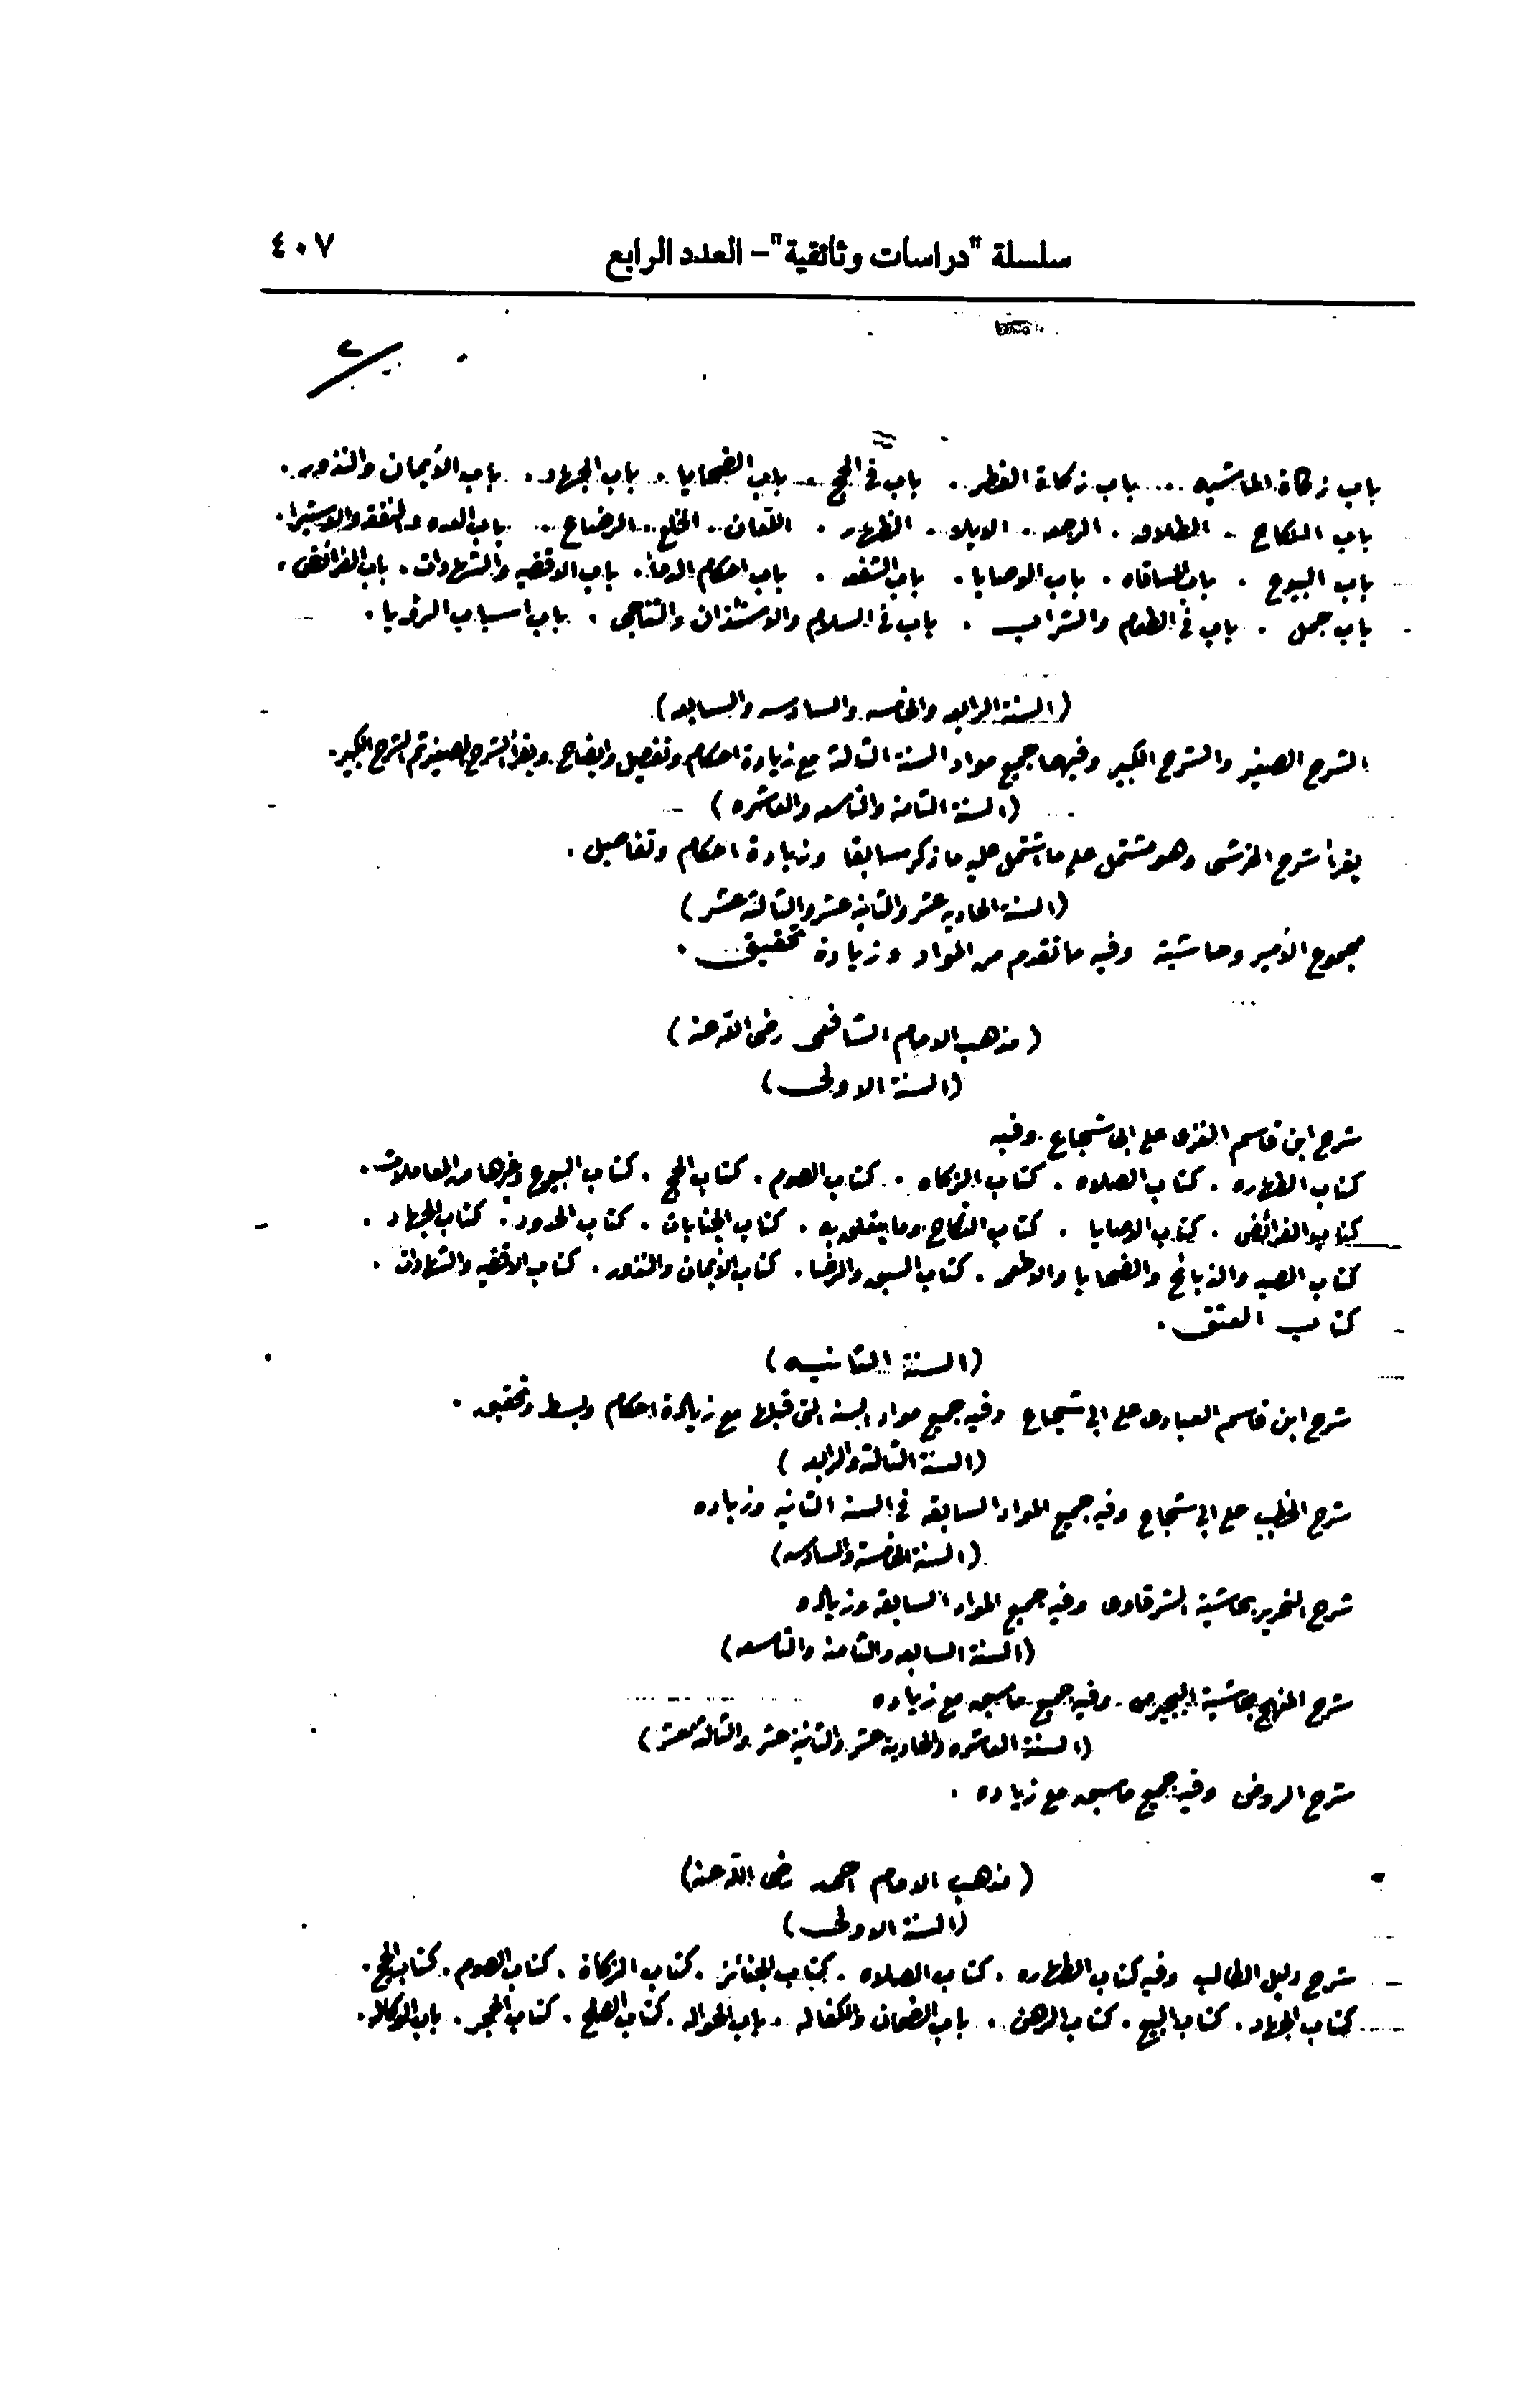 سلسلة "دراسات وثائقية" – العدد الرابع ٤٠٧
٢
باب زكاة الماشيه . باب زكاة الفطر . باب فى الحج . باب الضحايا . باب الجهاد . باب الأيمان والنذور .
باب النكاح . الطلاق . الرجعه . الايلاء . الظهار . اللعان . الخلع . الرضاع . باب العده والنفقه والاستبرا .
باب البيوع . باب المساقاه . باب الوصايا . باب الشفعه . باب احكام الدما . باب الاقضيه والشهادات . باب الفرائض .
باب جمل . باب فى الطعام والشراب . باب فى السلام والاستئذان والتناجى . باب اسباب الرؤيا .
(السنة الرابعه والخامسه والسادسه والسابعه)
الشرح الصغير والشرح الكبير وفيهما جميع مواد السنة الثالثة مع زيادة احكام وتفصيل وايضاح . ويقرأ الشرح الصغير ثم الشرح الكبير .
(السنة الثامنة والتاسعه والعاشره)
يقرأ شرح الخرشى وهو مشتمل على ما اشتمل عليه ما ذكر سابقا وزيادة احكام وتفاصيل .
(السنة الحاديه عشر والثانيه عشر والثالثة عشر)
مجموع الأمير وحاشيته وفيه ما تقدم من المواد وزيادة تحقيق .
(مذهب الامام الشافعى رضى الله عنه)
(السنة الاولى)
شرح ابن قاسم الغزى على ابى شجاع . وفيه
كتاب الطهاره . كتاب الصلاه . كتاب الزكاه . كتاب الصوم . كتاب الحج . كتاب البيوع وغيرها من المعاملات .
كتاب الفرائض . كتاب الوصايا . كتاب النكاح وما يتعلق به . كتاب الجنايات . كتاب الحدود . كتاب الجهاد .
كتاب الصيد والذبائح والضحايا والاطعمه . كتاب السبق والرضا . كتاب الأيمان والنذور . كتاب الاقضيه والشهادات .
كتاب العتق .
(السنة الثانيه)
شرح ابن قاسم العبادى على ابى شجاع وفيه جميع مواد السنة التى قبلها مع زيادة احكام وبسط وتحقيق .
(السنة الثالثة والرابعه)
شرح الخطيب على ابى شجاع وفيه جميع المواد السابقه فى السنة الثانيه وزياده
(السنة الخامسة والسادسه)
شرح التحرير بحاشية الشرقاوى وفيه جميع المواد السابقه وزياده
(السنة السابعه والثامنه والتاسعه)
شرح المنهج بحاشية البجيرمى . وفيه جميع ما سبق مع زياده
(السنة العاشره والحادية عشر والثانية عشر والثالثة عشر)
شرح الروض وفيه جميع ما سبق مع زياده .
(مذهب الامام احمد رضى الله عنه)
(السنة الاولى)
شرح دليل الطالب وفيه كتاب الطهاره . كتاب الصلاه . كتاب الجنائز . كتاب الزكاة . كتاب الصوم . كتاب الحج .
كتاب الجهاد . كتاب البيع . كتاب الرهن . باب الضمان والكفاله . باب الحواله . كتاب الصلح . كتاب الحجر . باب الوكاله .